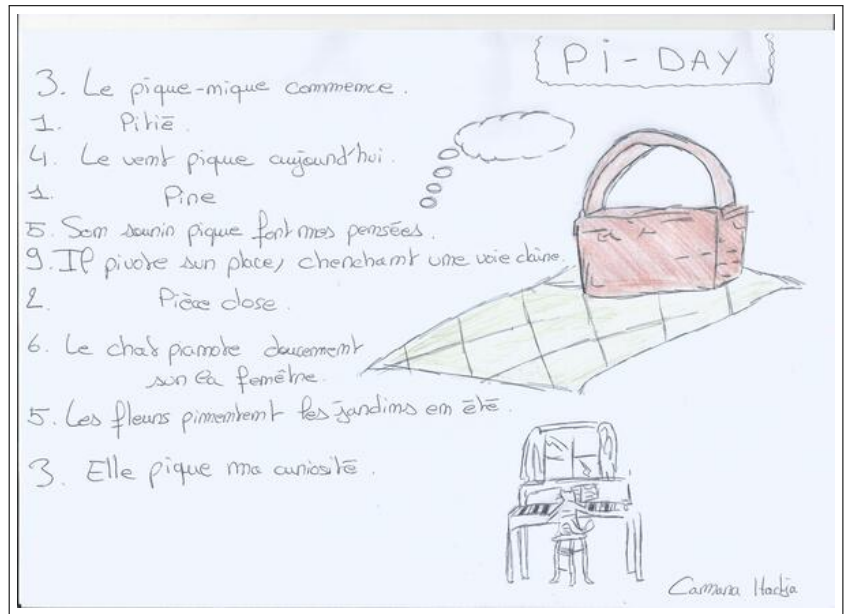 Pi-DAY
3. Le pique-nique commence.
1. Pitié.
4. Le vent pique aujourd'hui.
1. Pire
5. Son sourir pique fort mes pensées.
9. Il pivote sur place, cherchant une voie claire.
2. Pièce close.
6. Le chat pianote doucement
sur la fenêtre.
5. Les fleurs pimentent les jardins en été.
3. Elle pique ma curiosité.